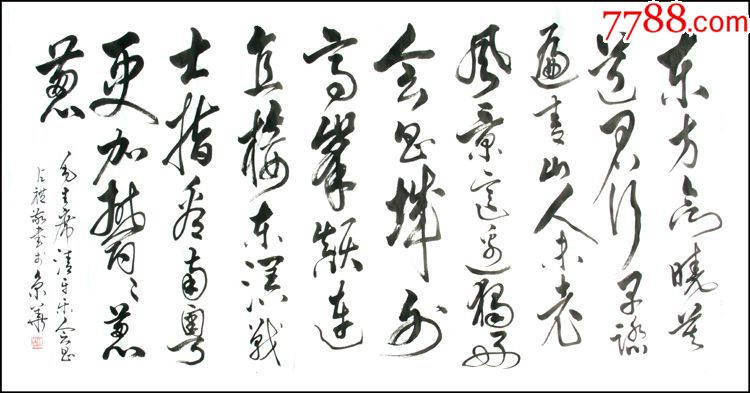 7788.com
东方欲曉莫
道君行早踏
遍青山人未老
风景这边独好
会昌城外
高峯颠连
直接东溟战
士指看南粤
更加郁々葱
葱
毛主席清平乐会昌
书于京華